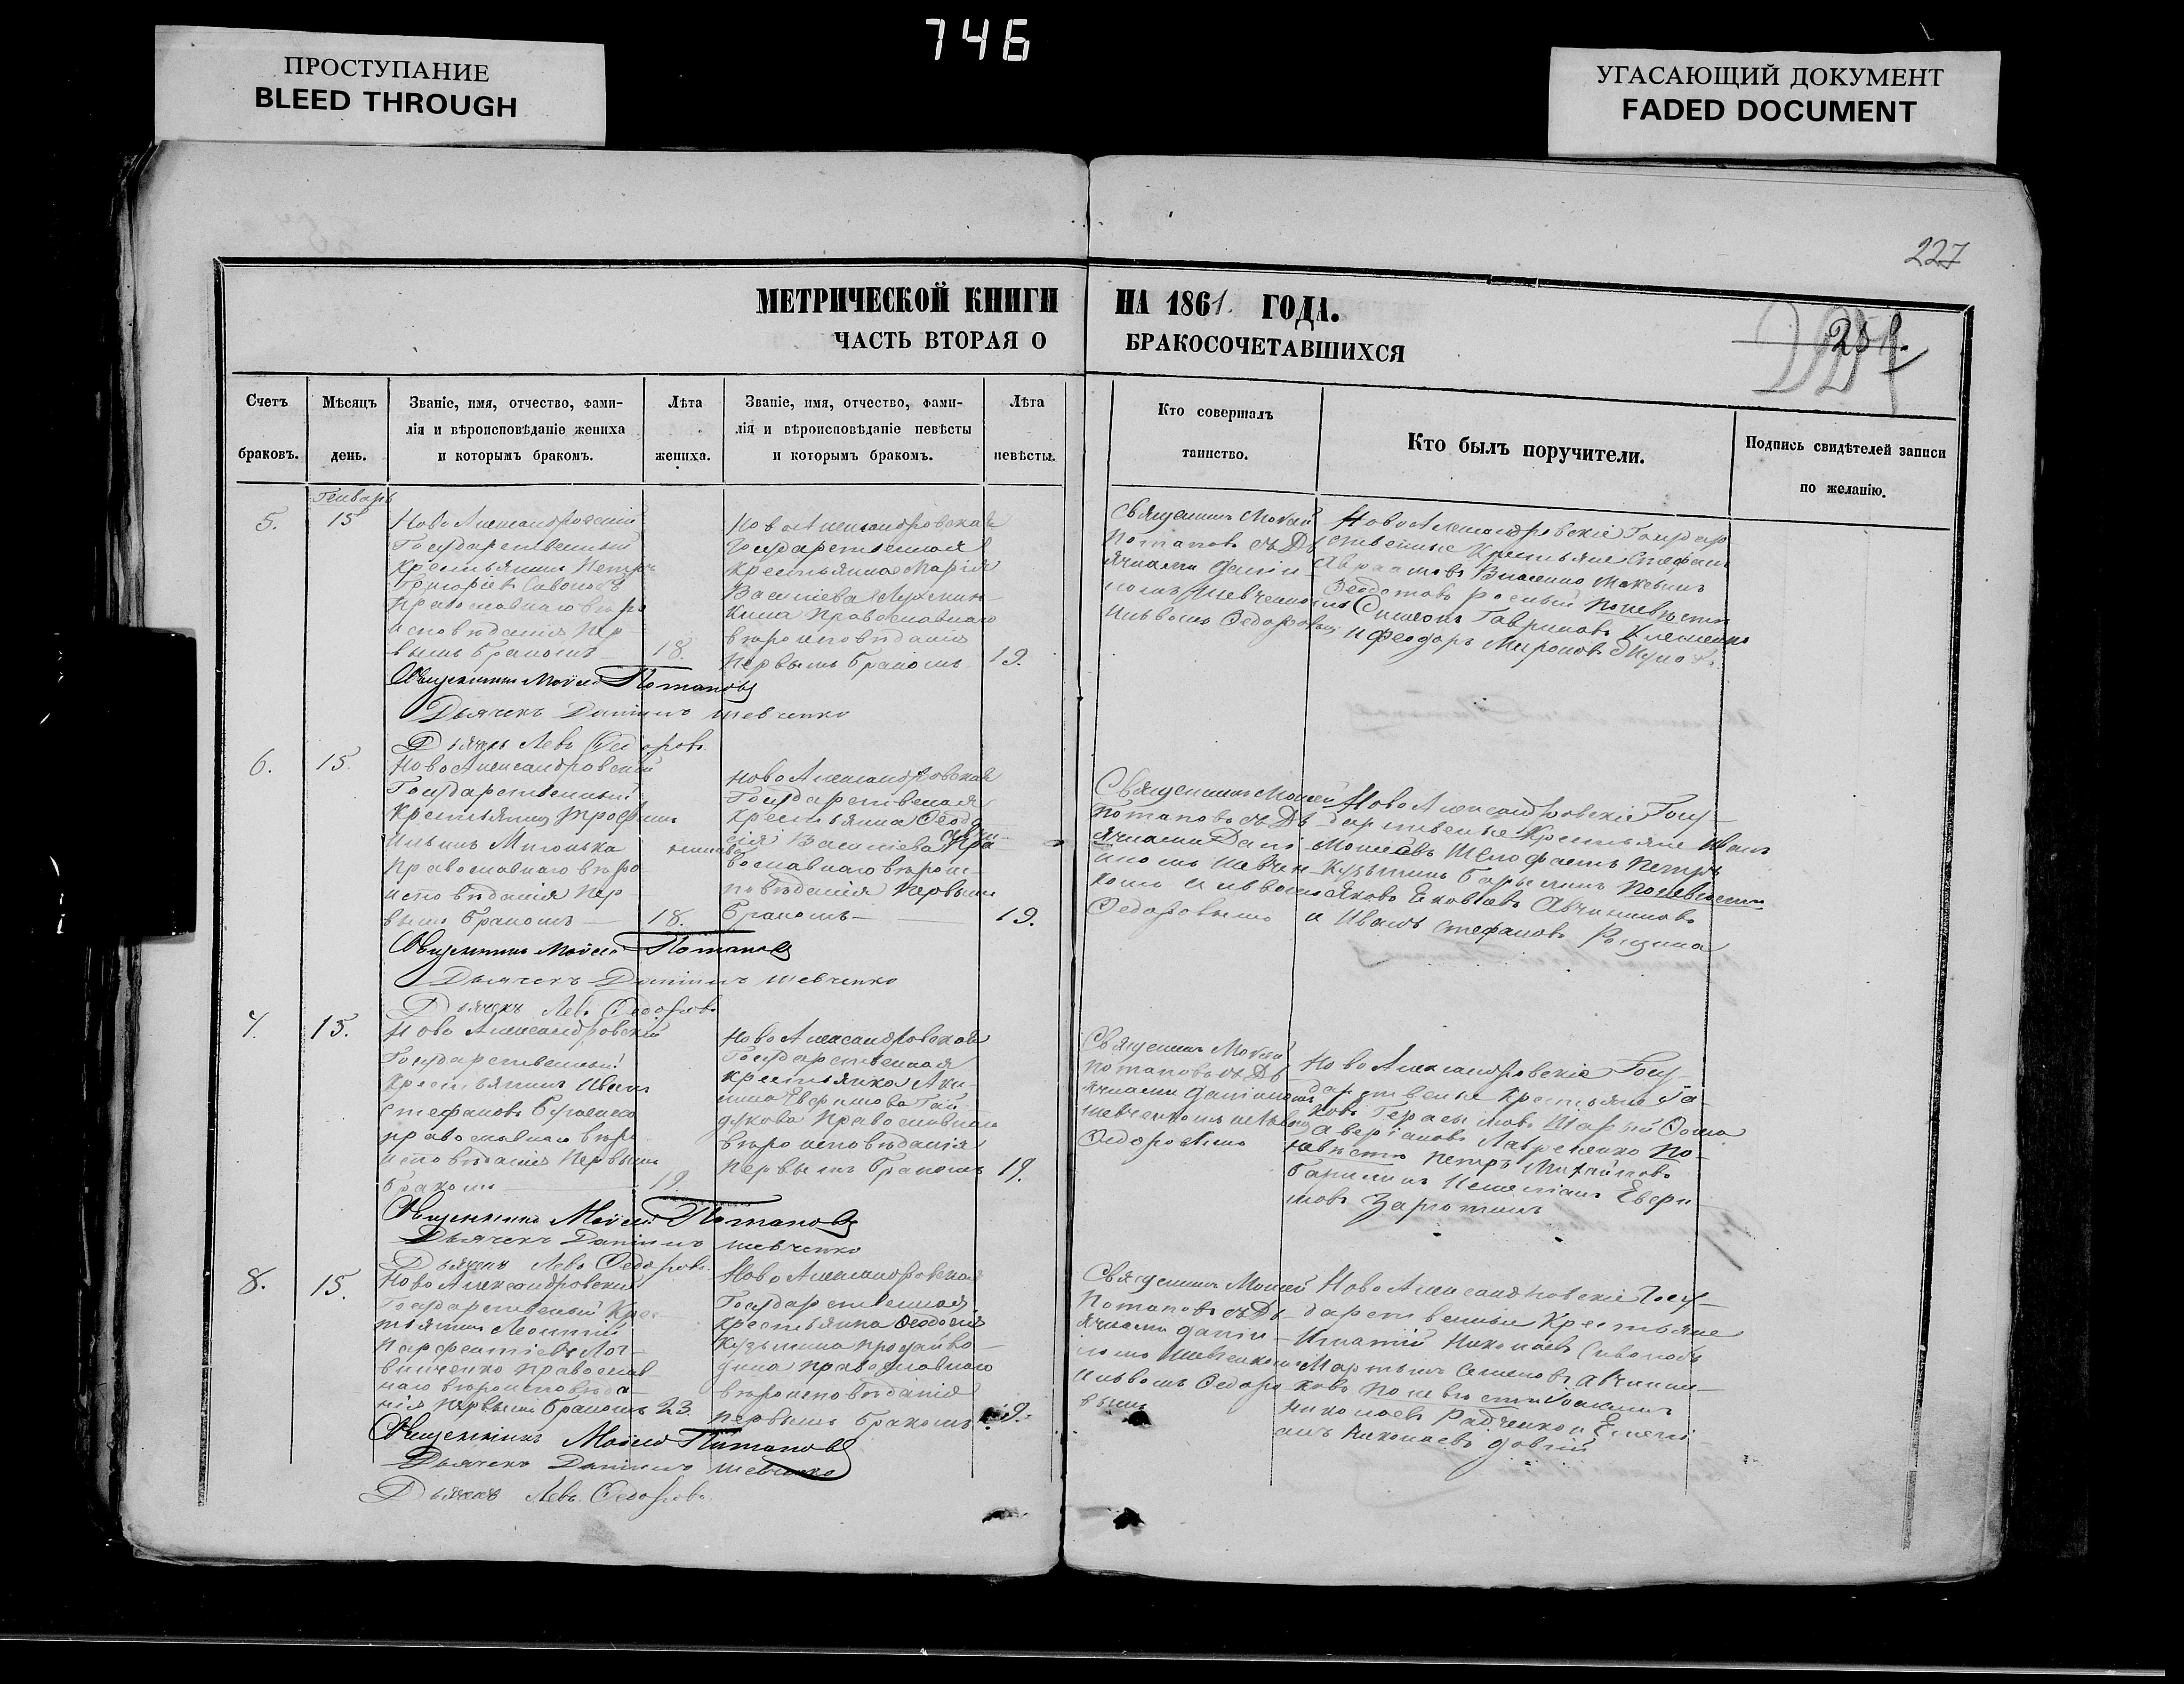 746
ПРОСТУПАНИЕ
BLEED THROUGH
УГАСАЮЩИЙ ДОКУМЕНТ
FADED DOCUMENT
227
МЕТРИЧЕСКОЙ КНИГИ НА 1861 ГОДА.
ЧАСТЬ ВТОРАЯ О БРАКОСОЧЕТАВШИХСЯ
Счетъ
браковъ.
Мѣсяцъ
день.
Званіе, имя, отчество, фами-
лія и вѣроисповѣданіе жениха
и которымъ бракомъ.
Лѣта
жениха.
Званіе, имя, отчество, фами-
лія и вѣроисповѣданіе невѣсты
и которымъ бракомъ.
Лѣта
невѣсты.
Кто совершалъ
таинство.
Кто былъ поручители.
Подпись свидѣтелей записи
по желанію.
Генварь
5.
15
Ново Александровскій
Государственный
Крестьянинъ Петръ
Григоріевъ
Православнаго вѣро
исповѣданія пер-
вымъ бракомъ
18.
Ново Александровская
Государственная
Крестьянка Марія
Васильева
Православнаго
вѣроисповѣданія
первымъ бракомъ
19.
Священникъ Моисей
Потаповъ съ Дь
ячками Дани-
иломъ Шевченкомъ
и Львомъ Федоровымъ
Ново Александровскіе Государ
ственные Крестьяне Стефанъ
Авраамовъ Максимъ
Федотовъ по невѣстѣ
Симеонъ Гавриловъ Клименко
и Феодоръ Мироновъ
Священникъ Моисей Потаповъ
Дьячекъ Даніилъ Шевченко
Дьячекъ Левъ Федоровъ
6.
15.
Ново Александровскій
Государственный
Крестьянинъ Трофимъ
Ильинъ
Православнаго вѣро
исповѣданія пер
вымъ бракомъ
18.
Ново Александровская
Государственная
Крестьянка Феодо
сія Васильева
Православнаго вѣроис-
повѣданія первымъ
бракомъ
19.
Священникъ Моисей
Потаповъ съ Дь
ячками Дані
иломъ Шевчен
комъ и Львомъ
Федоровымъ
Ново Александровскіе Госу-
дарственные Крестьяне Иванъ
Моисеевъ Петръ
Кузьминъ по невѣстѣ
Яковъ Яковлевъ
и Иванъ Стефановъ
Священникъ Моисей Потаповъ
Дьячекъ Даніилъ Шевченко
Дьячекъ Левъ Федоровъ
7.
15.
Ново Александровскій
Государственный
Крестьянинъ Иванъ
Стефановъ
православнаго вѣро
исповѣданія первымъ
бракомъ
19.
Ново Александровская
Государственная
крестьянка Аки-
лина Гай
дукова Православнаго
вѣроисповѣданія
первымъ бракомъ
19.
Священникъ Моисей
Потаповъ съ Дь
ячками Даніиломъ
Шевченкомъ и Львомъ
Федоровымъ
Ново Александровскіе Госу-
дарственные Крестьяне Я-
ковъ Герасимовъ Шарый Фома
Аверіановъ Лавриненко по
невѣстѣ Петръ Михайловъ
Священникъ Моисей Потаповъ
Дьячекъ Даніилъ Шевченко
Дьячекъ Левъ Федоровъ
8.
15.
Ново Александровскій
Государственный Крес
тьянинъ Леонтій
Парфентіевъ Лог-
винченко православ
наго вѣроисповѣда-
нія первымъ бракомъ
23.
Ново Александровская
Государственная
Крестьянка Феодосія
Кузьмина
православнаго
вѣроисповѣданія
первымъ бракомъ
Священникъ Моисей
Потаповъ съ Дь-
ячками Дани-
иломъ Шевченкомъ
и Львомъ Федоро
вымъ
Ново Александровскіе Госу-
дарственные Крестьяне
Игнатій Николаевъ
Мартынъ Семеновъ
по невѣстѣ
Николаевъ Радченко и Емелі
анъ Николаевъ Довгій
Священникъ Моисей Потаповъ
Дьячекъ Даніилъ Шевченко
Дьячекъ Левъ Федоровъ